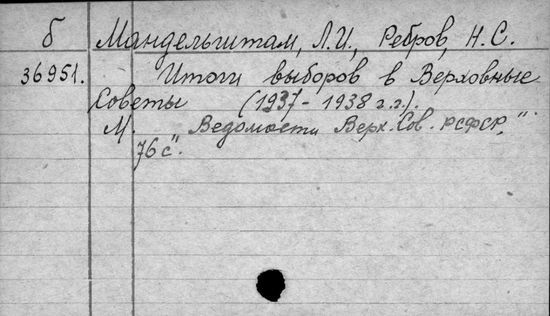 б Мандельштам, Л.И., Ребров, Н.С.
36951. Итоги выборов в Верховные
Советы (1937-1938 г.г.).
М. Ведомости Верх. Сов. РСФСР,"
76 с".